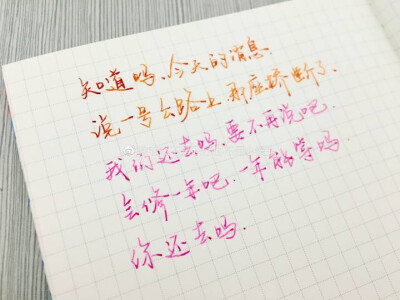 知道吗、今天的消息、
说一号公路上、那座桥断了、
我们还去吗、要不再说吧、
会修一年吧、一年能等吗、
你还去吗、